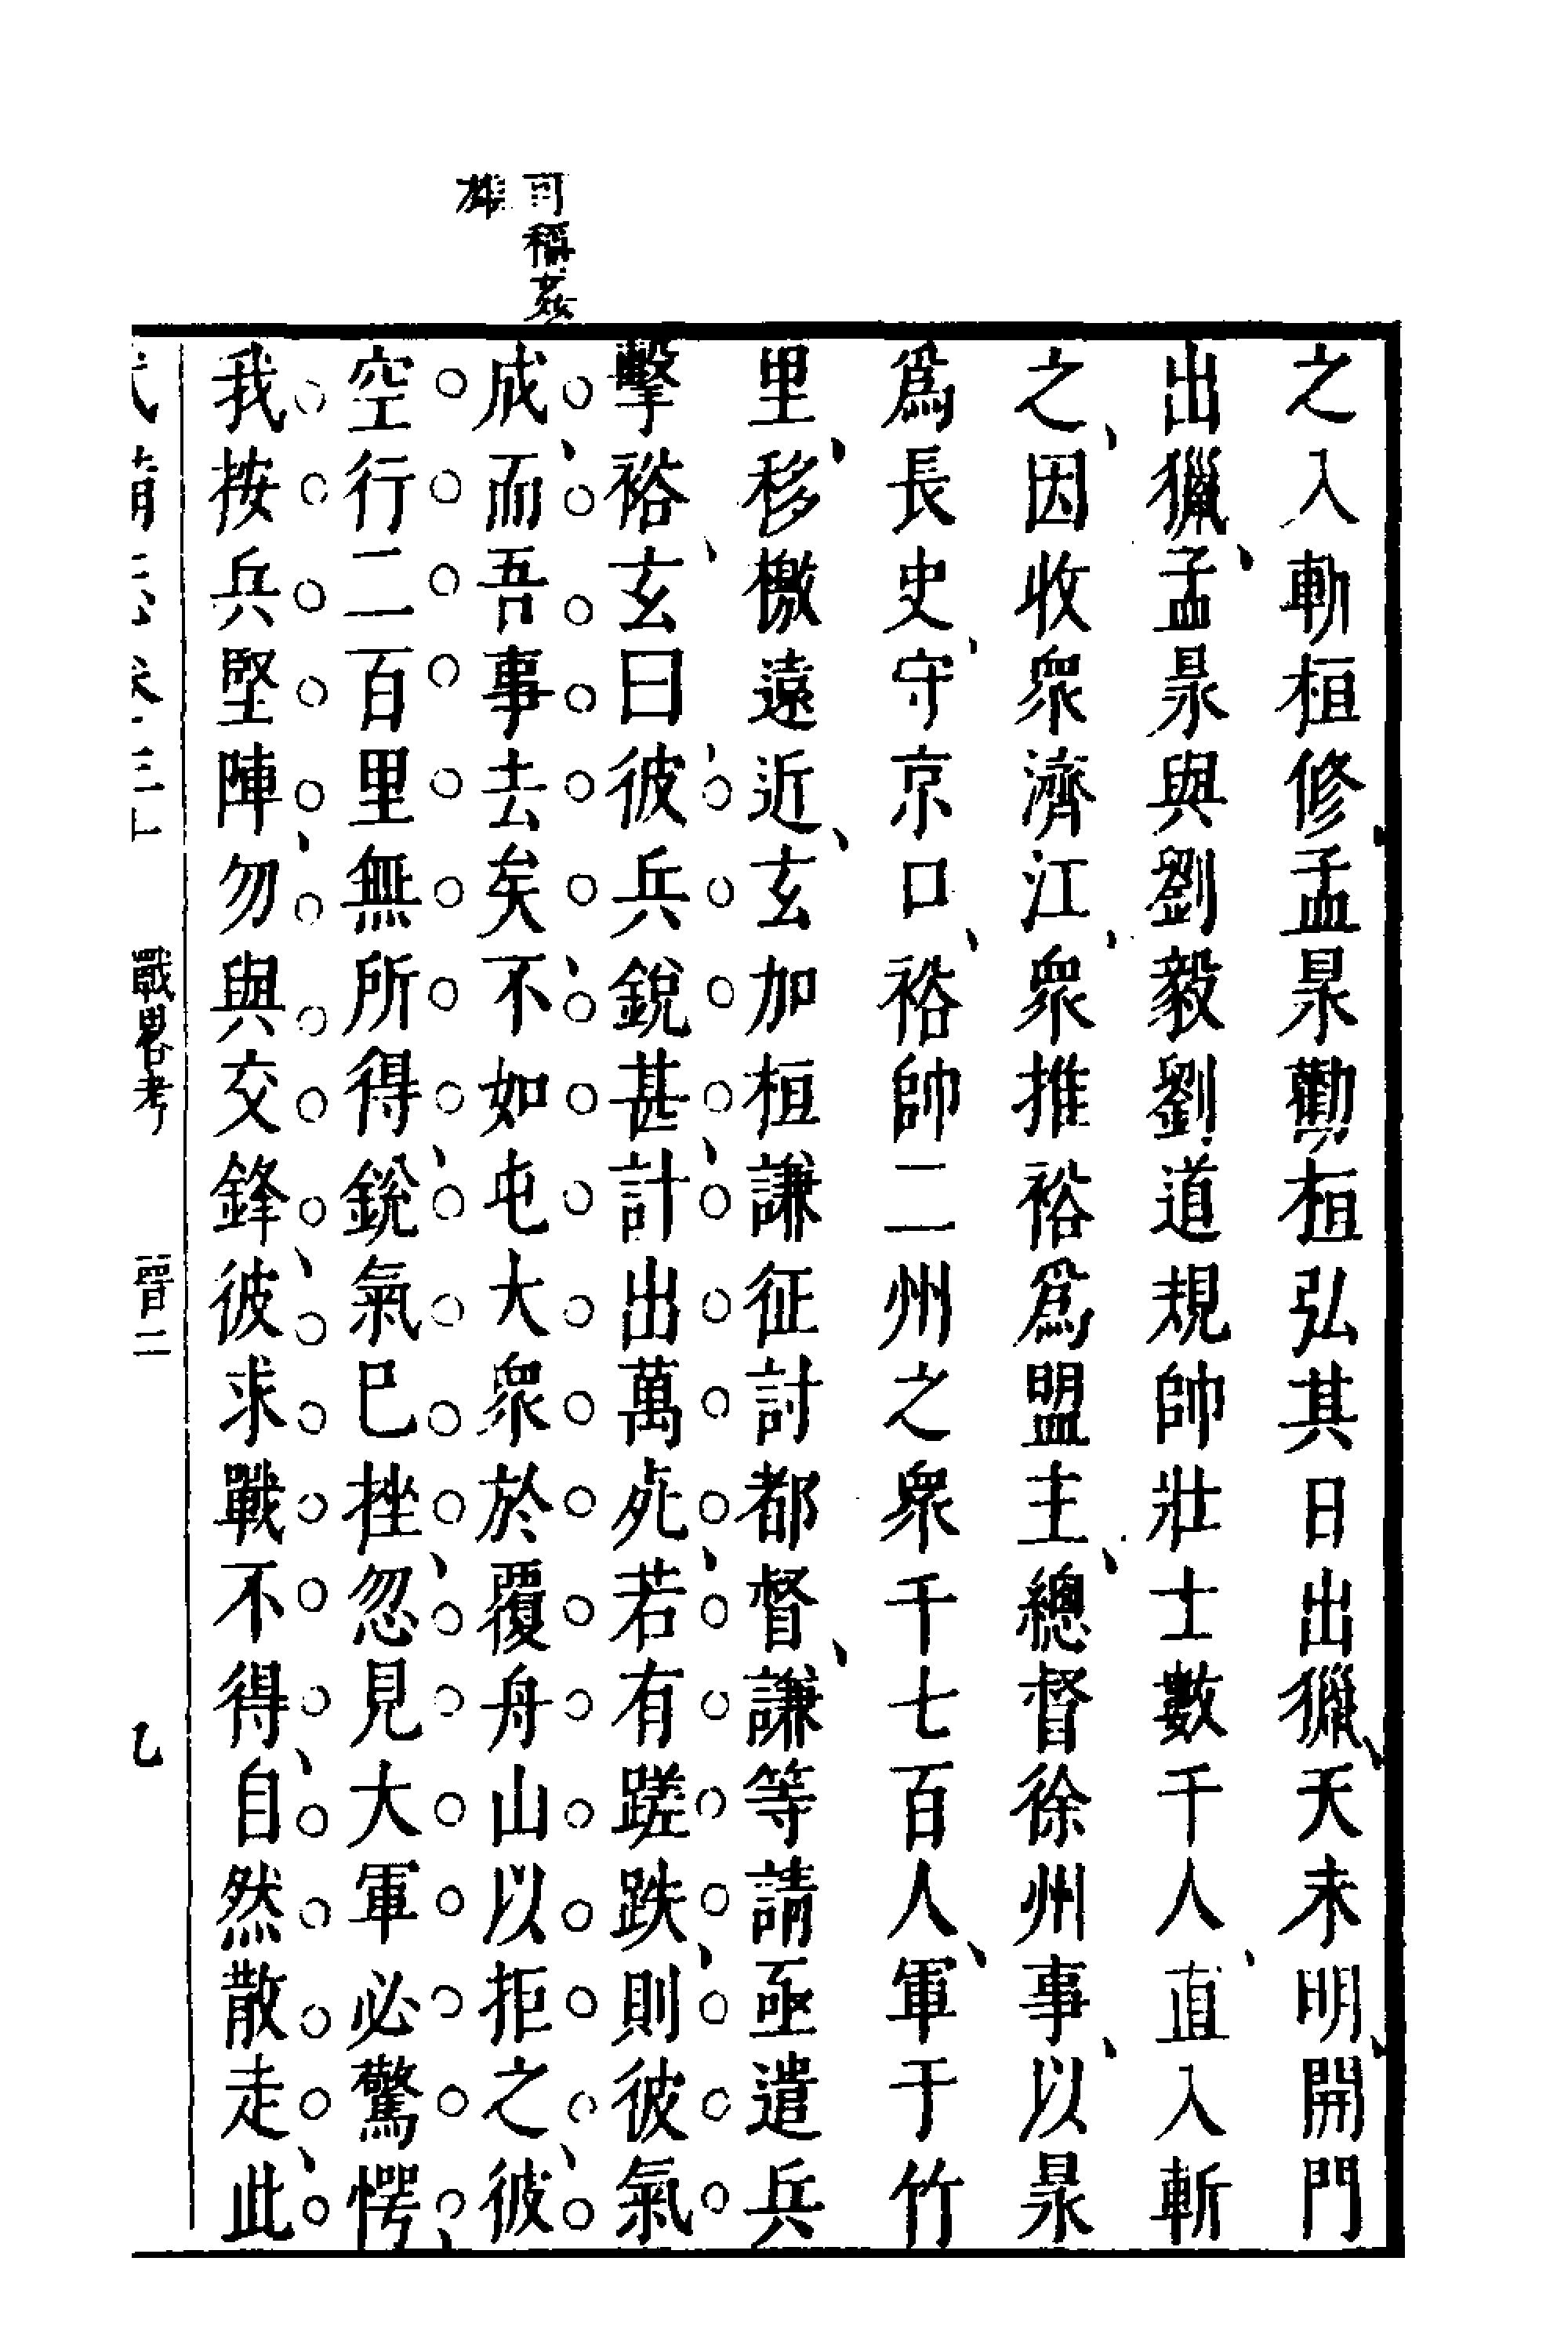 可稱姦
雄
之入斬桓修孟昶勸桓弘其日出獵天未明開門
出獵孟昶與劉毅劉道規帥壯士數千人直入斬
之因收衆濟江衆推裕爲盟主總督徐州事以昶
爲長史守京口裕帥二州之衆千七百人軍于竹
里移檄遠近玄加桓謙征討都督謙等請亟遣兵
擊裕玄曰彼兵銳甚計出萬死若有蹉跌則彼氣
成而吾事去矣不如屯大衆於覆舟山以拒之彼
空行二百里無所得銳氣巳挫忽見大軍必驚愕
我按兵堅陣勿與交鋒彼求戰不得自然散走此
戰畧考 晉二